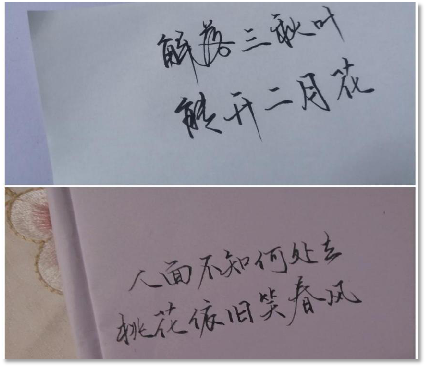 解落三秋叶
能开二月花
人面不知何处去
桃花依旧笑春风